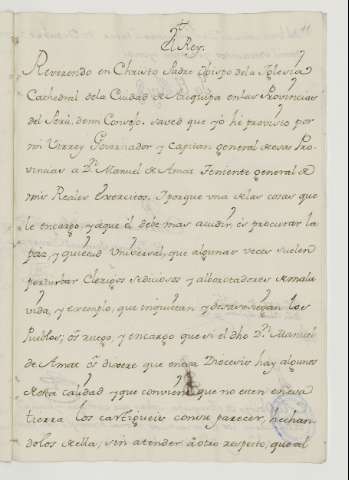 El Rey.
Reverendo en Christo Padre Obispo dela Yglesia
Cathedral dela Ciudad de Arequipa enlas Provincias
del Perú, demi Consejo, saved que yo hé provisto por
mi Virrey Governador y Capitan general de esas Pro
vincias a Dn. Manuel de Amat Teniente general de
mis Reales Exercitos. Y porque una delas cosas que
le encargo, y aque él debe mas acudir, es procurar la
paz, y quietud Universal, que algunas veces suelen
perturbar Clerigos sediciosos y alborotadores demala
vida, y exemplo, que inquietan y desasosiegan los
Pueblos; os ruego, y encargo que si el dho Dn. Manuel
de Amat os dixere que en esa Diocesis hay algunos
desta calidad y que conviene que no esten en esa
tierra los castigueis consu parecer, hechan
dolos della, sin atender á otro respecto, que al